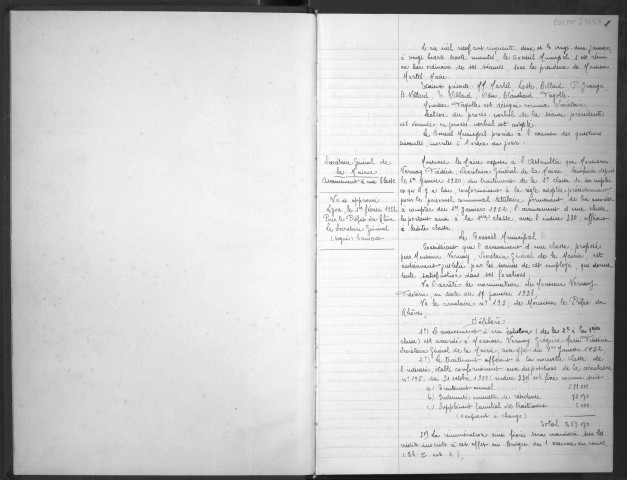 L'an mil neuf cent cinquante deux et le vingt deux janvier,
à vingt heures trente minutes, le Conseil Municipal s'est réuni
au lieu ordinaire de ses séances, sous la présidence de Monsieur
Martel, Maire.
Etaient présents: MM. Martel, Billard,
B. Villard, Villard, Blanchard
Monsieur est désigné comme Secrétaire.
Lecture du procès verbal de la séance précédente
est donnée, ce procès verbal est adopté.
Le Conseil Municipal procède à l'examen des questions
suivantes, inscrites à l'ordre du jour:
Secrétaire Général de
la Mairie
Avancement d'une Classe
Vu et approuvé
Lyon, le 1er février 1952
Pour le Préfet du Rhône
Le Secrétaire Général
(signé)
Monsieur le Maire expose à l'Assemblée que Monsieur
Vernay Frédéric, Secrétaire Général de la Mairie, bénéficie depuis
le 1er janvier 1950, du traitement de la 2e classe de son emploi
et qu'il y a lieu, conformément à la règle adoptée précédemment
pour le personnel communal titulaire, de lui accorder
à compter du 1er janvier 1952, l'avancement d'une classe,
le portant ainsi à la 1ère classe avec l'indice 330, afférent
à ladite classe.
Le Conseil Municipal
Considérant que l'avancement d'une classe, proposé
pour Monsieur Vernay, Secrétaire Général de la Mairie, est
entièrement justifié par les services de cet employé, qui donne
toute satisfaction dans ses fonctions,
Vu l'arrêté de nomination de Monsieur Vernay
Frédéric, en date du 19 janvier 1938,
Vu la circulaire n° 195, de Monsieur le Préfet du
Rhône,
Délibère
1°) L'avancement d'un échelon (de la 2e à la 1ère
classe) est accordé à Monsieur Vernay Grégoire Marie Frédéric
Secrétaire Général de la Mairie, avec effet du 1er Janvier 1952.
2°) Le traitement afférent à la nouvelle classe de
l'intéressé, établi conformément aux dispositions de la circulaire
n° 195, du 31 octobre 1951 (indice 330) est fixé comme suit
a) Traitement annuel
b) Indemnité annuelle de résidence
c) Supplément familial de traitement
(enfant à charge)
Total
3°) La rémunération ainsi fixée sera mandatée sur les
crédits inscrits à cet effet au Budget de l'exercice en cours,